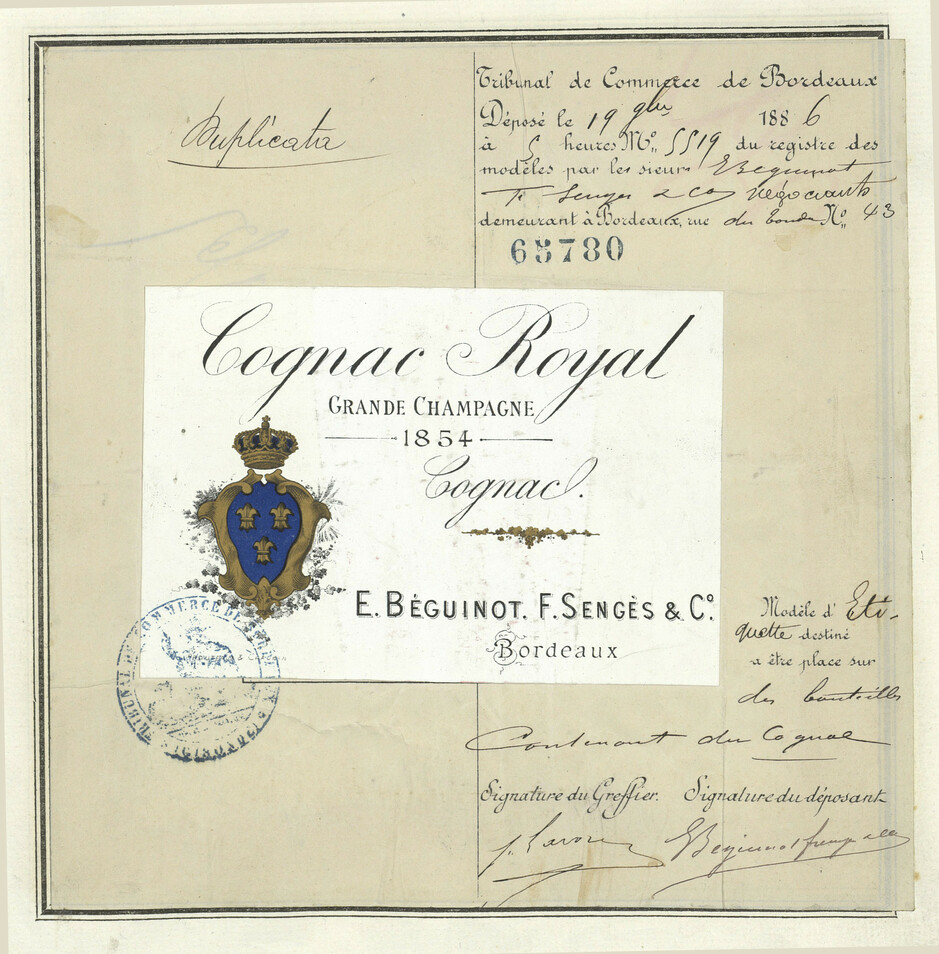 Duplicata
Tribunal de Commerce de Bordeaux
Déposé le 19 9bre 1886
à 5 heures No 5519 du registre des
modèles par les sieurs E Béguinot
F. Senges & Co négociants
demeurant à Bordeaux, rue du No 43
65780
Cognac Royal
GRANDE CHAMPAGNE
1854
Cognac.
E. BÉGUINOT. F. SENGÈS & Co.
Bordeaux
TRIBUNAL DE COMMERCE DE BORDEAUX
(GIRONDE)
Modèle d'Eti-
quette destiné
a être place sur
des bouteilles
Contenant du Cognac
Signature du Greffier. Signature du déposant